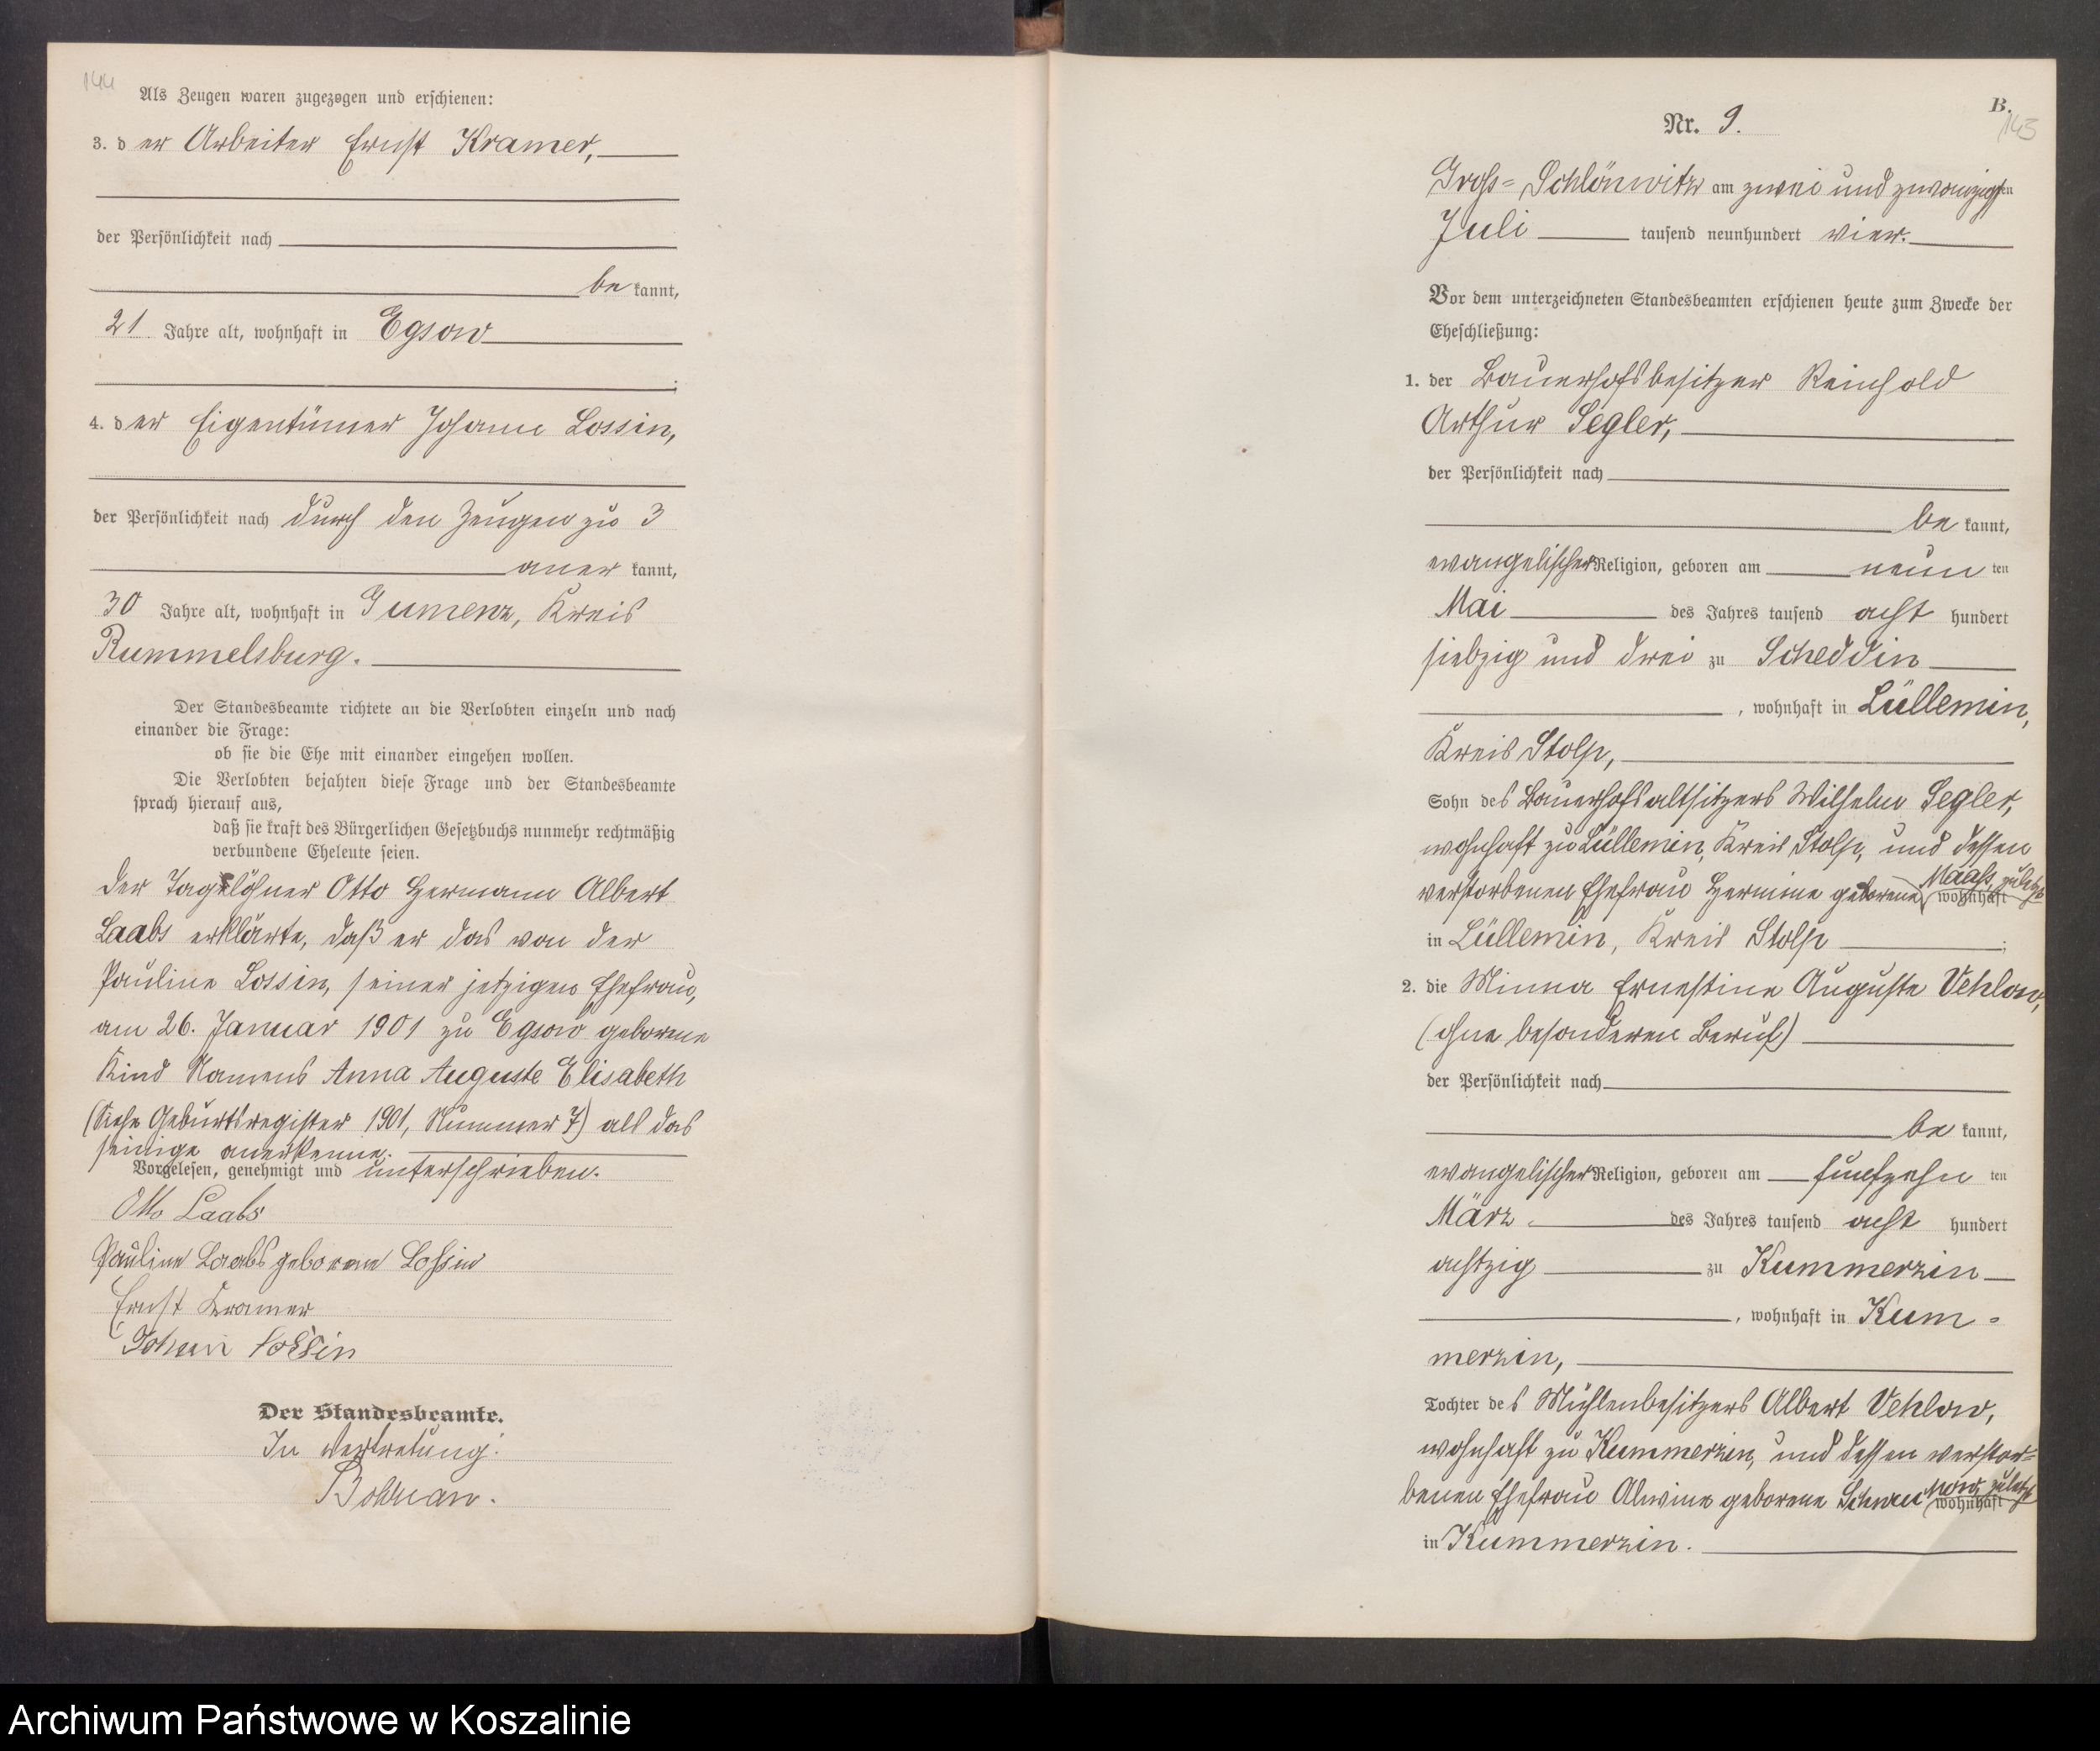 144
Als Zeugen waren zugezogen und erschienen:
3. der Arbeiter Ernst Kramer,
der Persönlichkeit nach
be kannt,
21 Jahre alt, wohnhaft in Egsow
;
4. der Eigentümer Johann Lossin,
der Persönlichkeit nach durch den Zeugen zu 3
aner kannt,
30 Jahre alt, wohnhaft in Gumenz, Kreis
Rummelsburg.
Der Standesbeamte richtete an die Verlobten einzeln und nach
einander die Frage:
ob sie die Ehe mit einander eingehen wollen.
Die Verlobten bejahten diese Frage und der Standesbeamte
sprach hierauf aus,
daß sie kraft des Bürgerlichen Gesetzbuchs nunmehr rechtmäßig
verbundene Eheleute seien.
Der Tagelöhner Otto Hermann Albert
Laabs erklärte, daß er das von der
Pauline Lossin, seiner jetzigen Ehefrau,
am 26. Januar 1901 zu Egsow geborene
Kind Namens Anna Auguste Elisabeth
(Siehe Geburtsregister 1901, Nummer 7) als das
seinige anerkenne.
Vorgelesen, genehmigt und unterschrieben.
Otto Laabs
Pauline Laabs geborene Lossin
Ernst Kramer
Johann Lossin
Der Standesbeamte.
In Vertretung:
B.
143
Nr. 9.
Gross-Schlönwitz am zwei und zwanzigsten
Juli tausend neunhundert vier.
Vor dem unterzeichneten Standesbeamten erschienen heute zum Zwecke der
Eheschließung:
1. der Bauerhofsbesitzer Reinhold
Arthur Segler,
der Persönlichkeit nach
be kannt,
evangelischer Religion, geboren am neun ten
Mai des Jahres tausend acht hundert
siebzig und drei zu Scheddin
, wohnhaft in Lüllemin,
Kreis Stolp,
Sohn des Bauerhofsaltsitzers Wilhelm Segler,
wohnhaft zu Lüllemin, Kreis Stolp, und dessen
verstorbenen Ehefrau Hermine geborene Maass, zuletzt wohnhaft
in Lüllemin, Kreis Stolp ;
2. die Minna Ernestine Auguste Vehlow,
(ohne besonderen Beruf)
der Persönlichkeit nach
be kannt,
evangelischer Religion, geboren am fünfzehn ten
März des Jahres tausend acht hundert
achtzig zu Kummerzin
, wohnhaft in Kum-
merzin,
Tochter des Mühlenbesitzers Albert Vehlow,
wohnhaft zu Kummerzin, und dessen verstor-
benen Ehefrau Alwine geborene zuletzt wohnhaft
in Kummerzin.
Archiwum Państwowe w Koszalinie